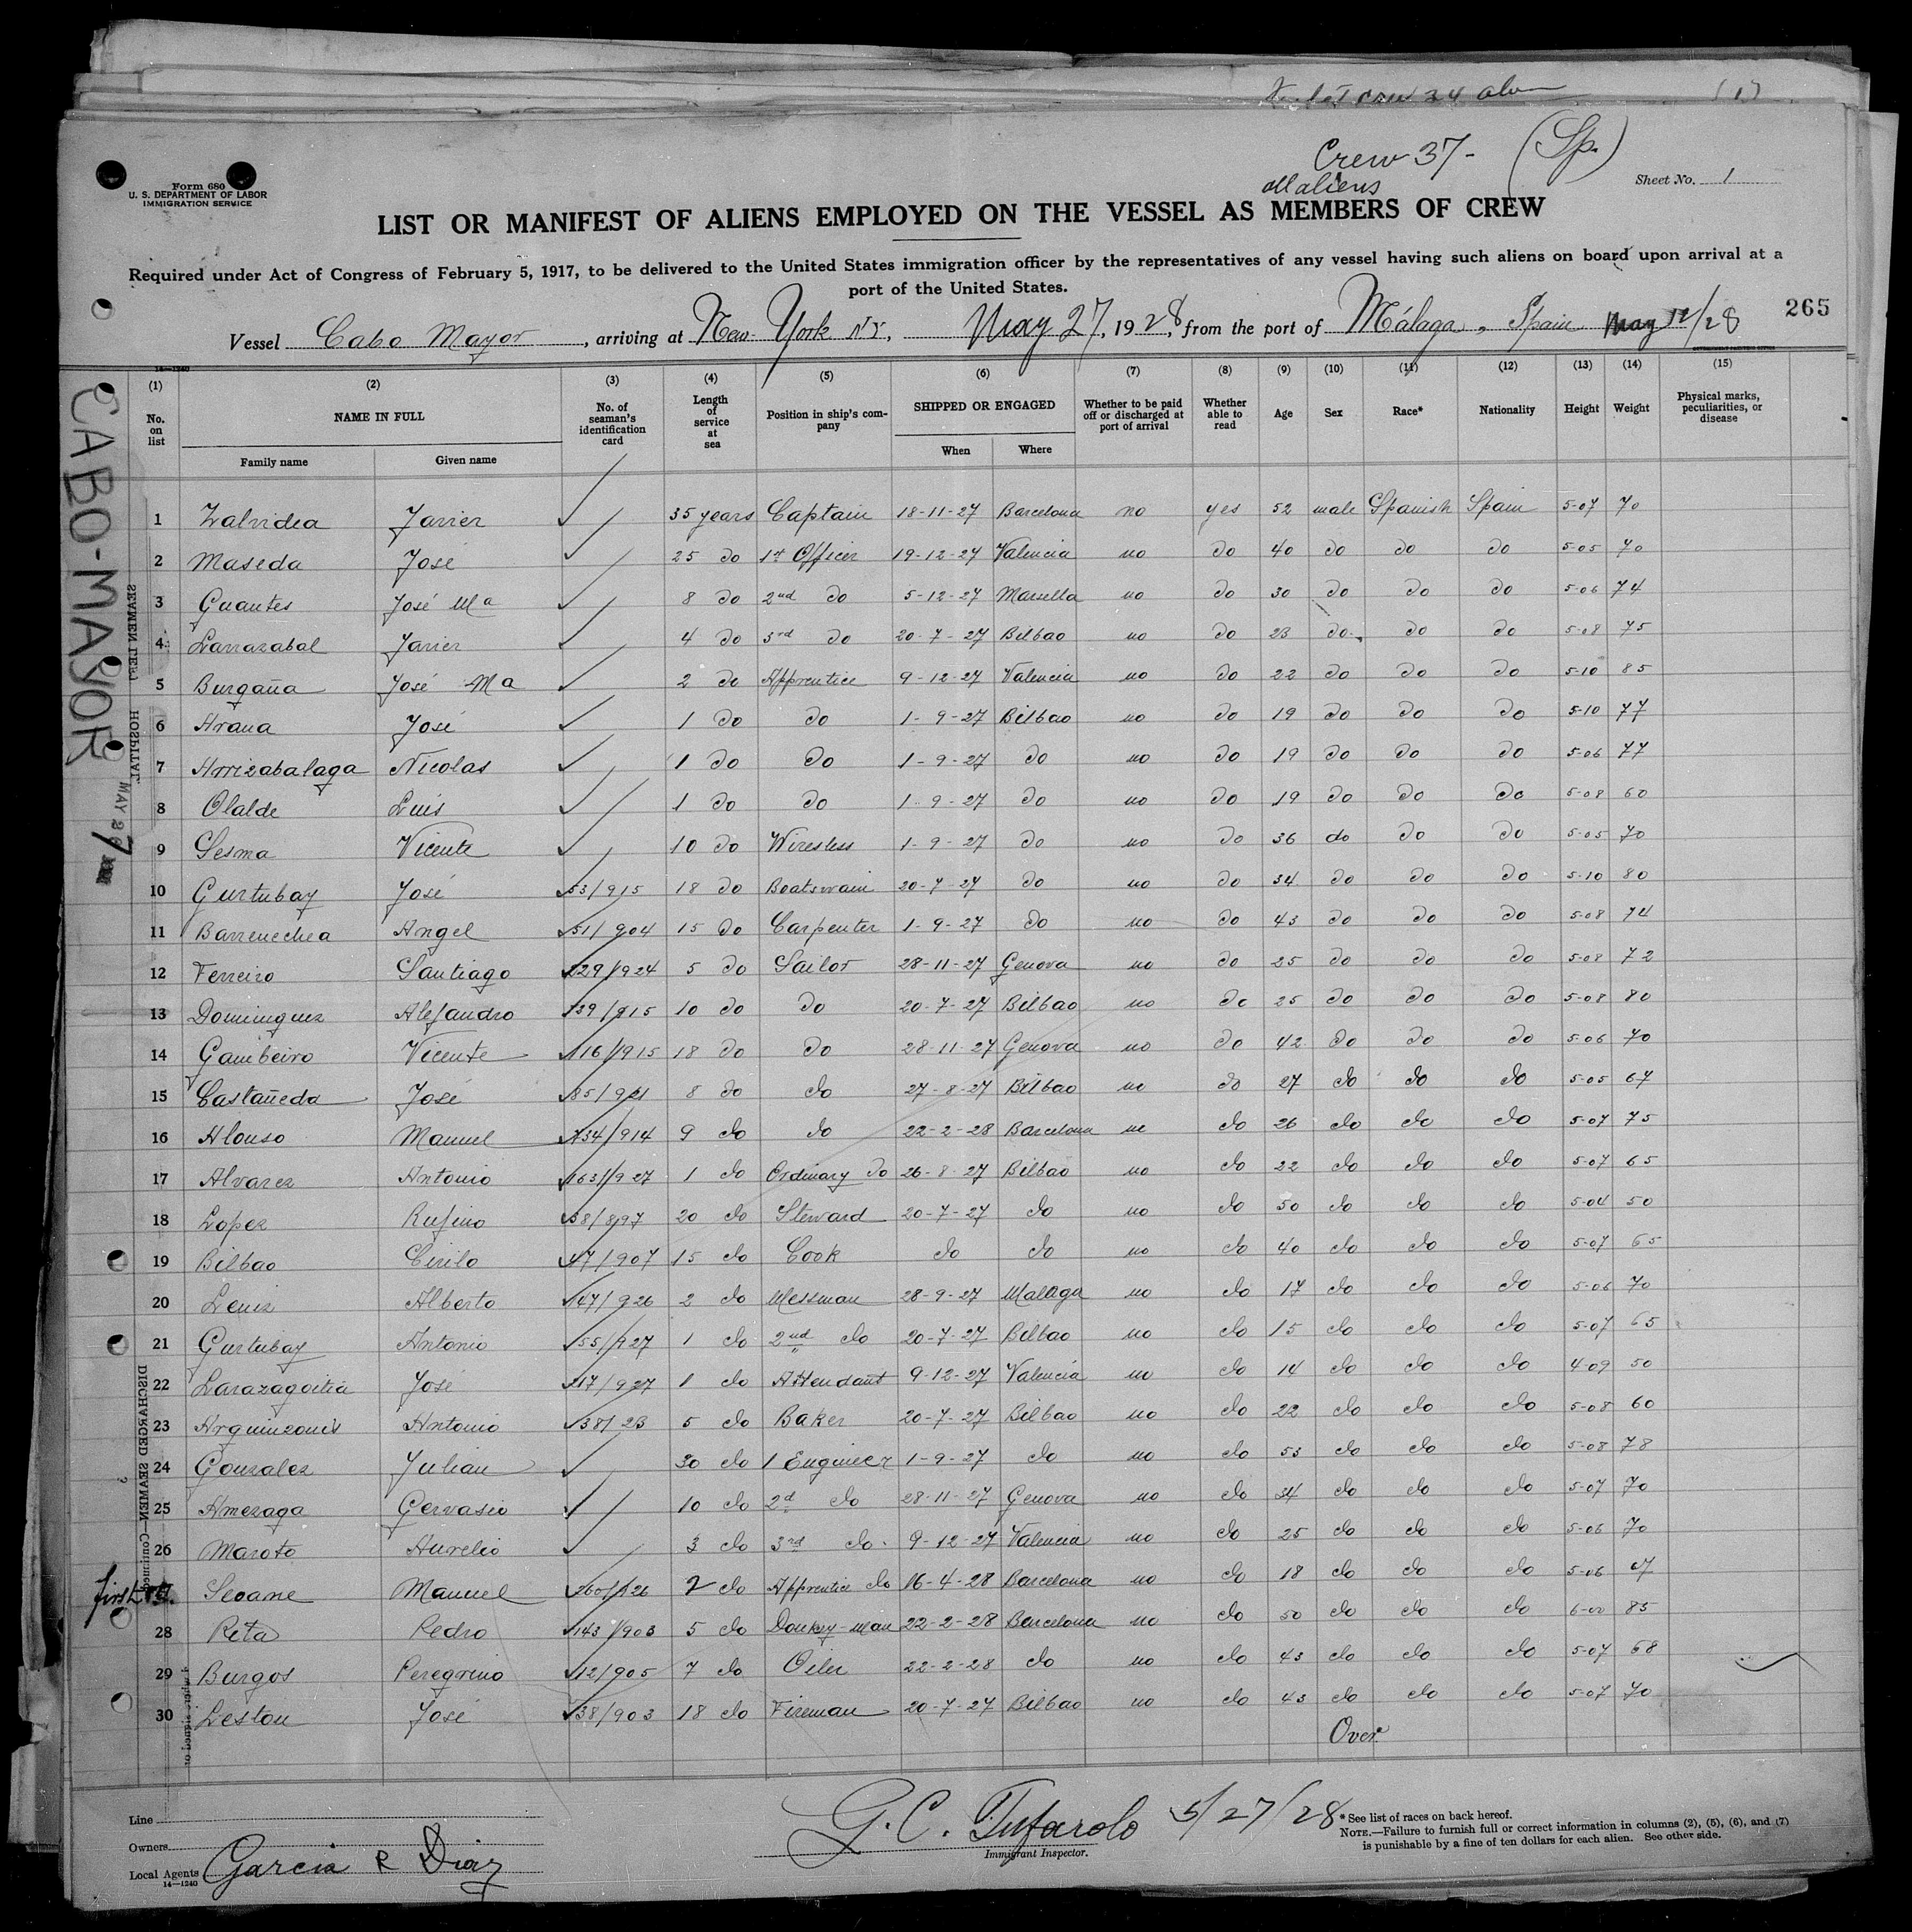 Crew 37- (Sp.)
all aliens
Form 680
U. S. DEPARTMENT OF LABOR
IMMIGRATION SERVICE
Sheet No. 1
LIST OR MANIFEST OF ALIENS EMPLOYED ON THE VESSEL AS MEMBERS OF CREW
Required under Act of Congress of February 5, 1917, to be delivered to the United States immigration officer by the representatives of any vessel having such aliens on board upon arrival at a
port of the United States.
265
Vessel Cabo Mayor, arriving at New York N.Y., May 27, 1928, from the port of Málaga, Spain May 12/28
14—1240
(1) (2) (3) (4) (5) (6) (7) (8) (9) (10) (11) (12) (13) (14) (15)
No. on list NAME IN FULL No. of seaman's identification card Length of service at sea Position in ship's company SHIPPED OR ENGAGED Whether to be paid off or discharged at port of arrival Whether able to read Age Sex Race* Nationality Height Weight Physical marks, peculiarities, or disease
Family name Given name When Where
1 Zalvidea Javier 35 years Captain 18-11-27 Barcelona no yes 52 male Spanish Spain 5-07 70
2 Maseda José 25 do 1st Officer 19-12-27 Valencia no do 40 do do do 5-05 70
3 Guantes José Ma 8 do 2nd do 5-12-27 Marsella no do 30 do do do 5-06 74
4 Larrazabal Javier 4 do 3rd do 20-7-27 Bilbao no do 23 do do do 5-08 75
5 Burgaña José Ma 2 do Apprentice 9-12-27 Valencia no do 22 do do do 5-10 85
6 Arana José 1 do do 1-9-27 Bilbao no do 19 do do do 5-10 77
7 Arrizabalaga Nicolas 1 do do 1-9-27 do no do 19 do do do 5-06 77
8 Olalde Luis 1 do do 1-9-27 do no do 19 do do do 5-08 60
9 Sesma Vicente 10 do Wireless 1-9-27 do no do 36 do do do 5-05 70
10 Gurtubay José 53/915 18 do Boatswain 20-7-27 do no do 34 do do do 5-10 80
11 Barrenechea Angel 51/904 15 do Carpenter 1-9-27 do no do 43 do do do 5-08 74
12 Ferreiro Santiago 229/924 5 do Sailor 28-11-27 Genova no do 25 do do do 5-08 72
13 Dominguez Alejandro 139/915 10 do do 20-7-27 Bilbao no do 25 do do do 5-08 80
14 Gambeiro Vicente 116/915 18 do do 28-11-27 Genova no do 42 do do do 5-06 70
15 Castañeda José 85/921 8 do do 27-8-27 Bilbao no do 27 do do do 5-05 67
16 Alonso Manuel 134/914 9 do do 22-2-28 Barcelona no do 26 do do do 5-07 75
17 Alvarez Antonio 1631/927 1 do Ordinary do 26-8-27 Bilbao no do 22 do do do 5-07 65
18 Lopez Rufino 38/897 20 do Steward 20-7-27 do no do 50 do do do 5-04 50
19 Bilbao Cirilo 47/907 15 do Cook do do no do 40 do do do 5-07 65
20 Leniz Alberto 147/926 2 do Messman 28-9-27 Malaga no do 17 do do do 5-06 70
21 Gurtubay Antonio 55/927 1 do 2nd do 20-7-27 Bilbao no do 15 do do do 5-07 65
22 Larazagoitia José 217/927 1 do Attendant 9-12-27 Valencia no do 14 do do do 4-09 50
23 Arguinzonis Antonio 38/23 5 do Baker 20-7-27 Bilbao no do 22 do do do 5-08 60
24 Gonzalez Julian 30 do 1 Engineer 1-9-27 do no do 53 do do do 5-08 78
25 Amezaga Gervasio 10 do 2d do 28-11-27 Genova no do 34 do do do 5-07 70
26 Maroto Aurelio 3 do 3rd do 9-12-27 Valencia no do 25 do do do 5-06 70
first Seoane Manuel 260/926 2 do Apprentice do 16-4-28 Barcelona no do 18 do do do 5-06
28 Reta Pedro 143/903 5 do Donkey-man 22-2-28 Barcelona no do 50 do do do 6-00 85
29 Burgos Peregrino 12/905 7 do Oiler 22-2-28 do no do 43 do do do 5-07 68
30 Leston José 38/903 18 do Fireman 20-7-27 Bilbao no do 43 do do do 5-07 70
Over
CABO-MAYOR
HOSPITAL
DISCHARGED SEAMEN—Continued
Line
Owners
Local Agents Garcia & Diaz
14—1240
G. C. Tufarolo 5/27/28
Immigrant Inspector.
*See list of races on back hereof.
NOTE.—Failure to furnish full or correct information in columns (2), (5), (6), and (7)
is punishable by a fine of ten dollars for each alien. See other side.